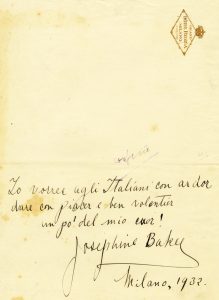 Io vorrei agli Italiani con ardor
dare con piacer e ben volontier
un po' del mio cuor!
Josephine Baker
Milano, 1932.